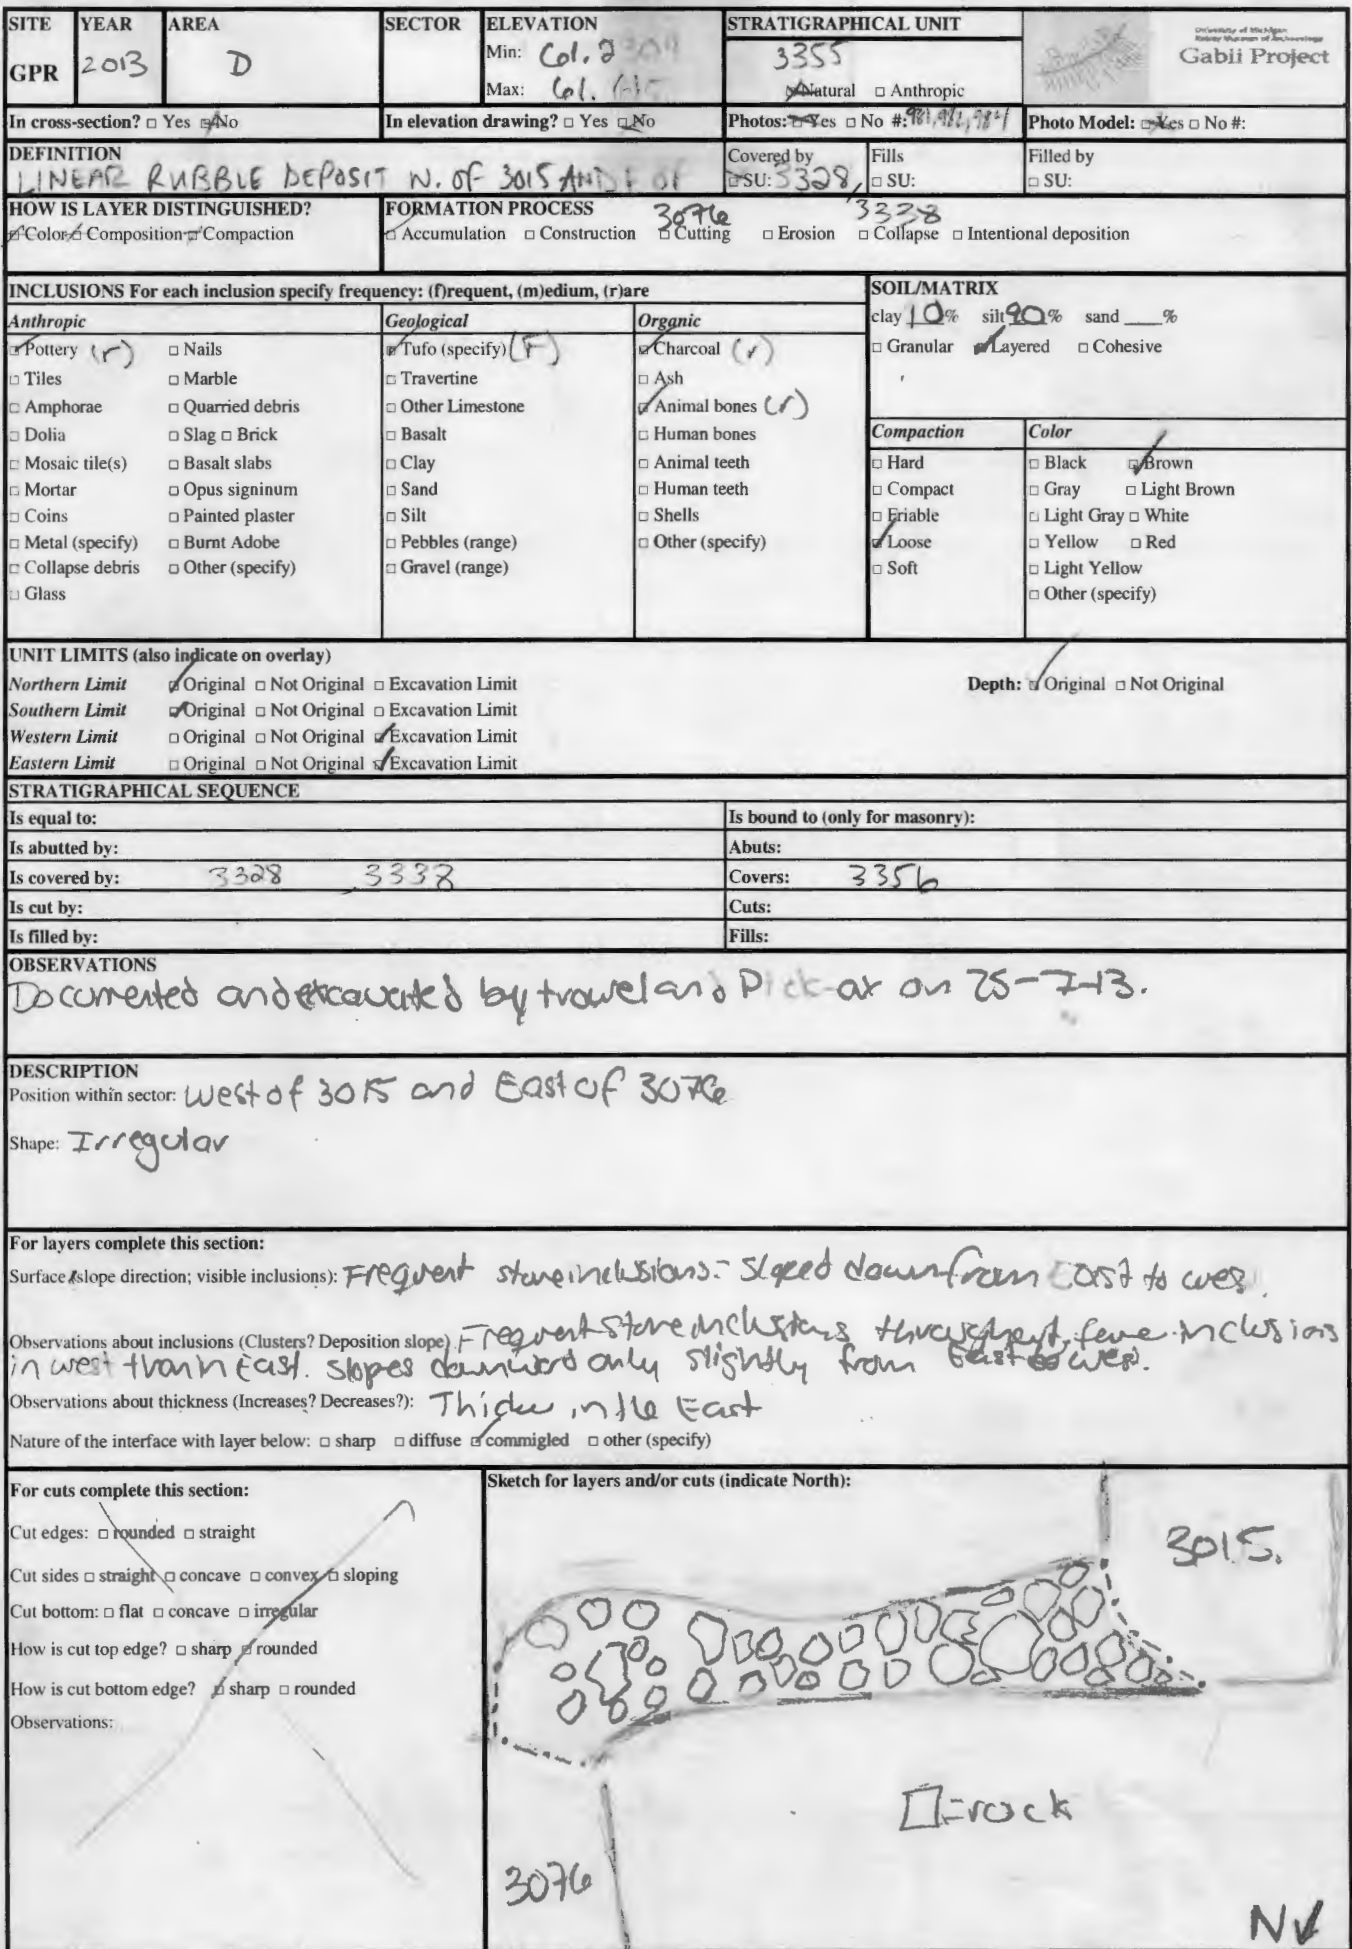 SITE YEAR AREA SECTOR ELEVATION STRATIGRAPHICAL UNIT
GPR 2013 D Min: Col. 2 3355
Max: Col. ☒Natural □ Anthropic
University of Michigan
Kelsey Museum of Archaeology
Gabii Project
In cross-section? □ Yes ☒No In elevation drawing? □ Yes ☒No Photos: ☒Yes □ No #: 981, 982, 984 Photo Model: ☒Yes □ No #:
DEFINITION
LINEAR RUBBLE DEPOSIT N. OF 3015 AND E OF 3076
Covered by
☒SU: 3328, 3338
Fills
□ SU:
Filled by
□ SU:
HOW IS LAYER DISTINGUISHED?
☒Color ☒Composition ☒Compaction
FORMATION PROCESS
☒Accumulation □ Construction □ Cutting □ Erosion □ Collapse □ Intentional deposition
INCLUSIONS For each inclusion specify frequency: (f)requent, (m)edium, (r)are
Anthropic
☒Pottery (r) □ Nails
□ Tiles □ Marble
□ Amphorae □ Quarried debris
□ Dolia □ Slag □ Brick
□ Mosaic tile(s) □ Basalt slabs
□ Mortar □ Opus signinum
□ Coins □ Painted plaster
□ Metal (specify) □ Burnt Adobe
□ Collapse debris □ Other (specify)
□ Glass
Geological
☒Tufo (specify) (F)
□ Travertine
□ Other Limestone
□ Basalt
□ Clay
□ Sand
□ Silt
□ Pebbles (range)
□ Gravel (range)
Organic
☒Charcoal (r)
□ Ash
☒Animal bones (r)
□ Human bones
□ Animal teeth
□ Human teeth
□ Shells
□ Other (specify)
SOIL/MATRIX
clay 10% silt 90% sand ___%
□ Granular ☒Layered □ Cohesive
Compaction
□ Hard
□ Compact
□ Friable
☒Loose
□ Soft
Color
□ Black ☒Brown
□ Gray □ Light Brown
□ Light Gray □ White
□ Yellow □ Red
□ Light Yellow
□ Other (specify)
UNIT LIMITS (also indicate on overlay)
Northern Limit ☒Original □ Not Original □ Excavation Limit Depth: ☒Original □ Not Original
Southern Limit ☒Original □ Not Original □ Excavation Limit
Western Limit □ Original □ Not Original ☒Excavation Limit
Eastern Limit □ Original □ Not Original ☒Excavation Limit
STRATIGRAPHICAL SEQUENCE
Is equal to: Is bound to (only for masonry):
Is abutted by: Abuts:
Is covered by: 3328, 3338 Covers: 3356
Is cut by: Cuts:
Is filled by: Fills:
OBSERVATIONS
Documented and excavated by trowel and Pick-ax on 25-7-13.
DESCRIPTION
Position within sector: West of 3015 and East of 3076
Shape: Irregular
For layers complete this section:
Surface (slope direction; visible inclusions): Frequent stone inclusions. Sloped down from East to wes
Observations about inclusions (Clusters? Deposition slope) Frequent stone inclusions throughout, fewe inclusions
in west than in East. slopes downward only slightly from East to west.
Observations about thickness (Increases? Decreases?): Thicker in the East
Nature of the interface with layer below: □ sharp □ diffuse ☒commigled □ other (specify)
For cuts complete this section:
Cut edges: □ rounded □ straight
Cut sides □ straight □ concave □ convex □ sloping
Cut bottom: □ flat □ concave □ irregular
How is cut top edge? □ sharp □ rounded
How is cut bottom edge? □ sharp □ rounded
Observations:
Sketch for layers and/or cuts (indicate North):
3015.
□=rock
3076
N